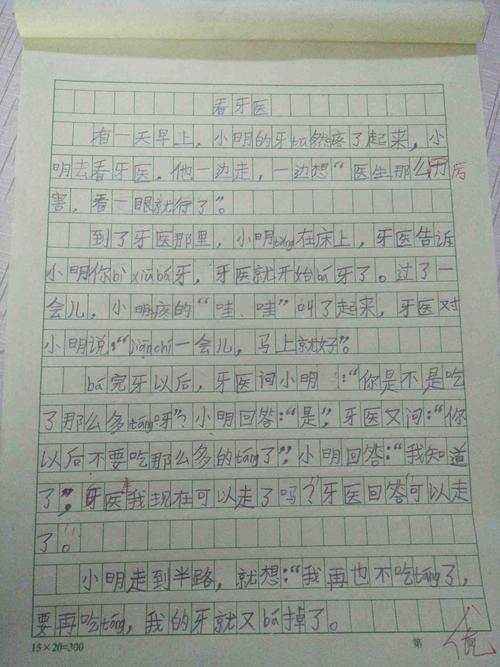 看牙医
有一天早上，小明的牙tū然疼了起来，小
明去看牙医。他一边走，一边想“医生那么厉
害，看一眼就行了”。
到了牙医那里，小明tǎng在床上，牙医告诉
小明你bì xiū bá牙，牙医就开始bá牙了。过了一
会儿，小明疼的“哇、哇”叫了起来，牙医对
小明说：“jiānchí一会儿，马上就好”。
bá完牙以后，牙医问小明：“你是不是吃
了那么多táng呀”？小明回答：“是”，牙医又问：“你
以后不要吃那么多的táng了”，小明回答：“我知道
了”，牙医我现在可以走了吗？牙医回答可以走
了。
小明走到半路，就想：“我再也不吃táng了，
要再吃táng，我的牙就又bá掉了。
15×20=300
第
优